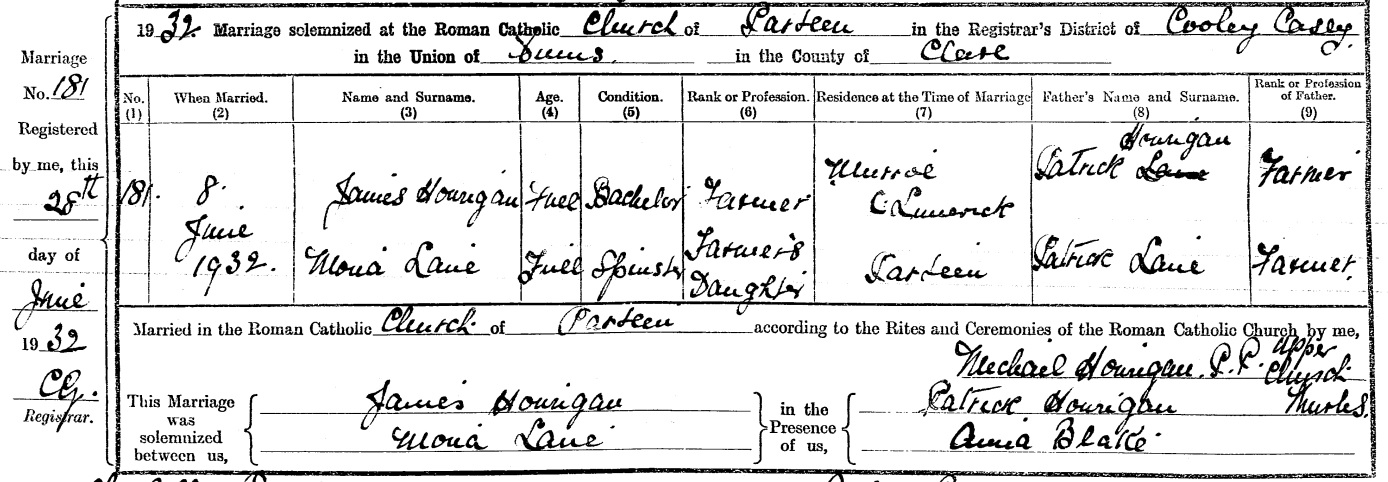 1932 Marriage solemnized at the Roman Catholic Church of Parteen in the Registrar's District of Cooley Casey
in the Union of in the County of Clare
Marriage
No. 181
Registered
by me, this
28th
day of
June
1932
CG.
Registrar.
No. (1) When Married. (2) Name and Surname. (3) Age. (4) Condition. (5) Rank or Profession. (6) Residence at the Time of Marriage (7) Father's Name and Surname. (8) Rank or Profession of Father. (9)
181. 8. June 1932. James Hourigan Full Bachelor Farmer Murroe Co Limerick Patrick Lane Hourigan Farmer
Mona Lane Full Spinster Farmer's Daughter Parteen Patrick Lane Farmer.
Married in the Roman Catholic Church of Parteen according to the Rites and Ceremonies of the Roman Catholic Church by me,
Michael Hourigan. P.P. Upper Church Thurles.
This Marriage was solemnized between us,
James Hourigan
Mona Lane
in the Presence of us,
Patrick Hourigan
Annia Blake